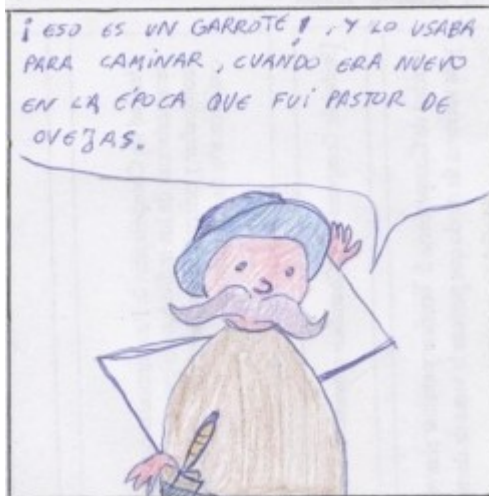 ¡ESO ES UN GARROTE!, Y LO USABA
PARA CAMINAR, CUANDO ERA NUEVO
EN LA ÉPOCA QUE FUI PASTOR DE
OVEJAS.